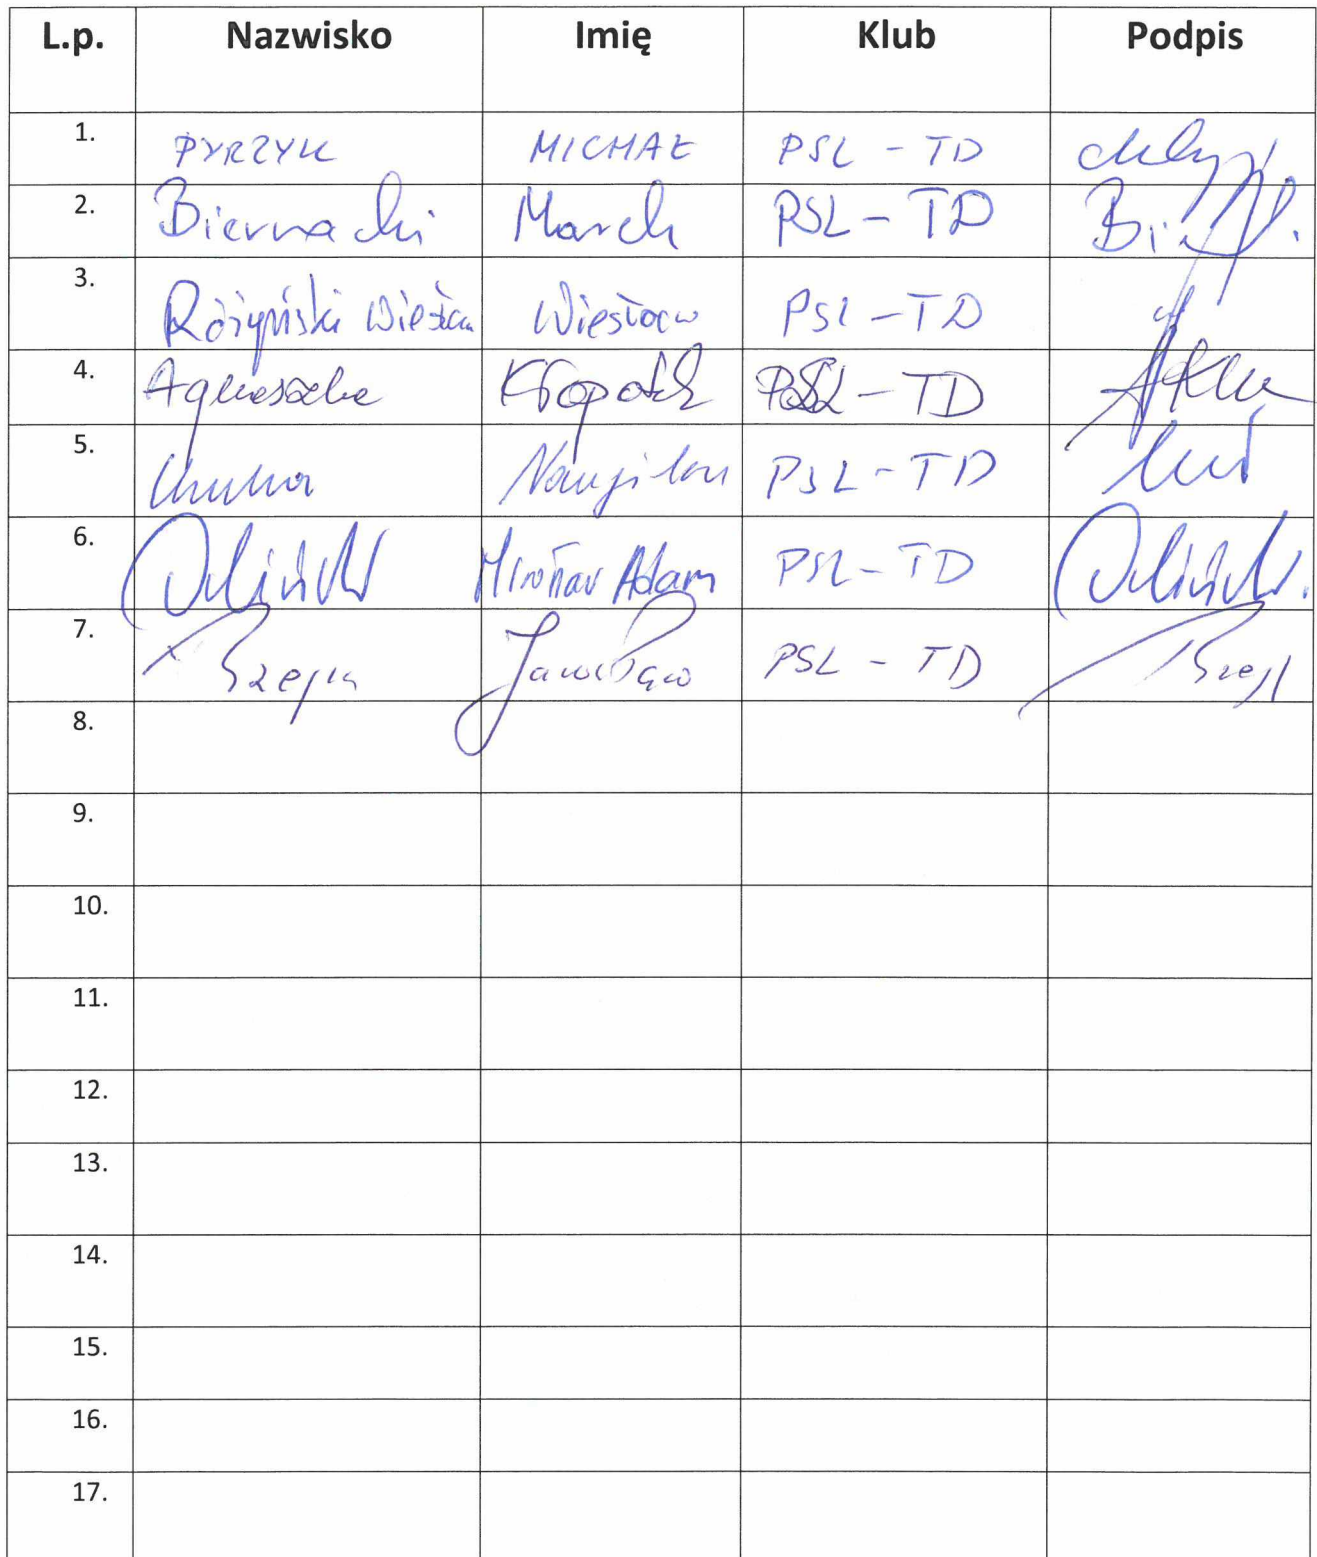 L.p. Nazwisko Imię Klub Podpis
1. PYRZYK MICHAŁ PSL - TD
2. Biernacki Marek PSL - TD
3. Różyński Wiesław Wiesław PSL - TD
4. Agnieszka Kłopotek PSL - TD
5. PSL - TD
6. Orliński Mirosław Adam PSL - TD Orliński.
7. Rzepa Jarosław PSL - TD
8.
9.
10.
11.
12.
13.
14.
15.
16.
17.